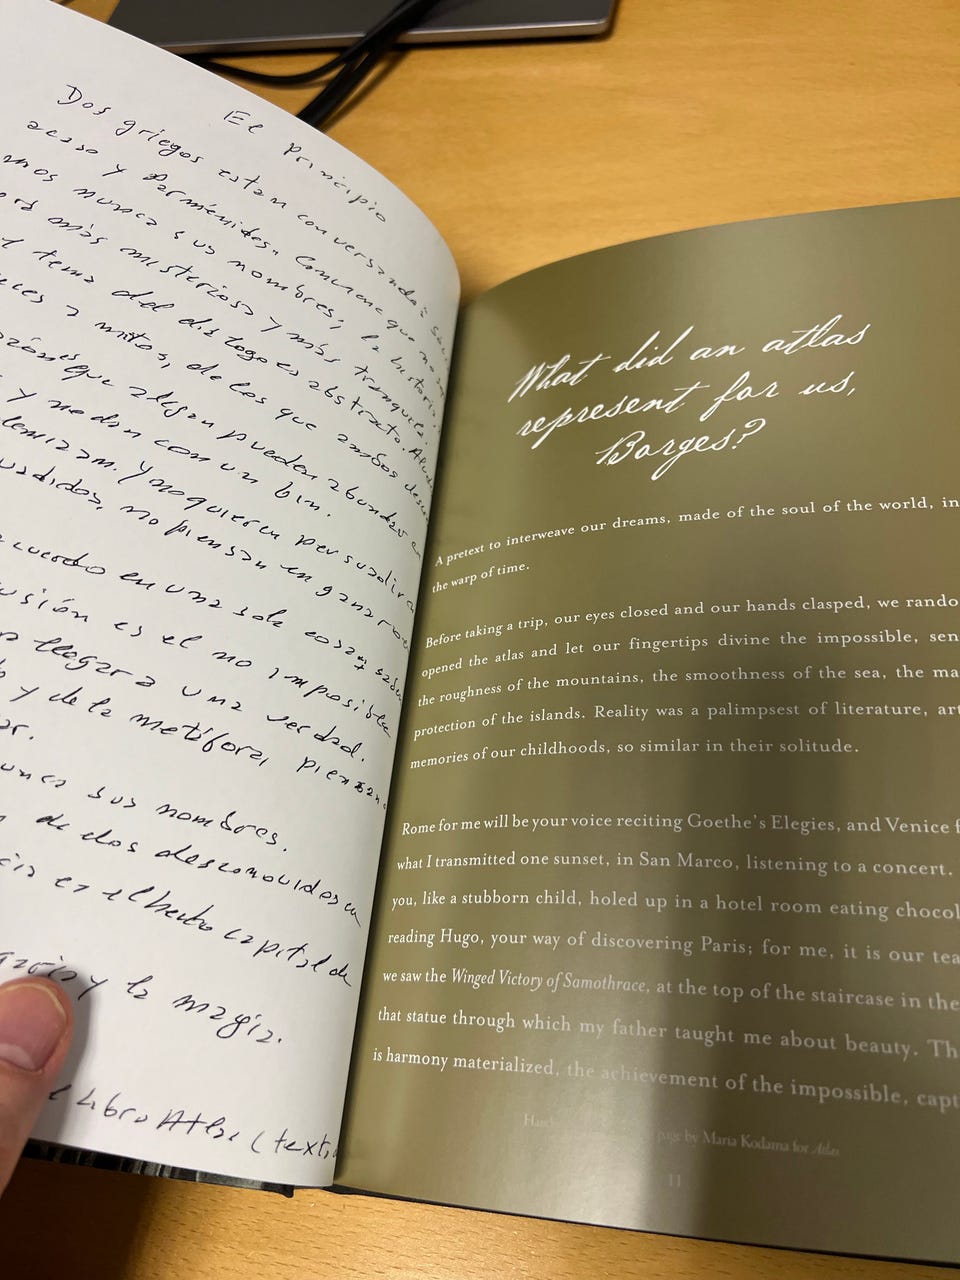 El Principio
Dos griegos están conversando:
acaso y Parménides. Conviene que no
nunca sus nombres; la historia
más misteriosa y más tranquila.
tema del diálogo es abstracto.
y mitos, de los que ambos
que alegan pueden abundar
y no dan con un fin.
y no quieren persuadir
no piensan en ganar
en una sola cosa; saben
es el no imposible
llegar a una verdad.
y de la metáfora, piensan
sus nombres.
de dos desconocidos en
es el hecho capital de
y la magia.
Libro Atlas (texto
What did an atlas
represent for us,
Borges?
A pretext to interweave our dreams, made of the soul of the world, in
the warp of time.
Before taking a trip, our eyes closed and our hands clasped, we rando
opened the atlas and let our fingertips divine the impossible, sen
the roughness of the mountains, the smoothness of the sea, the ma
protection of the islands. Reality was a palimpsest of literature, art
memories of our childhoods, so similar in their solitude.
Rome for me will be your voice reciting Goethe's Elegies, and Venice f
what I transmitted one sunset, in San Marco, listening to a concert.
you, like a stubborn child, holed up in a hotel room eating chocol
reading Hugo, your way of discovering Paris; for me, it is our tea
we saw the Winged Victory of Samothrace, at the top of the staircase in the
that statue through which my father taught me about beauty. Th
is harmony materialized, the achievement of the impossible, capt
page by Maria Kodama for Atlas
11